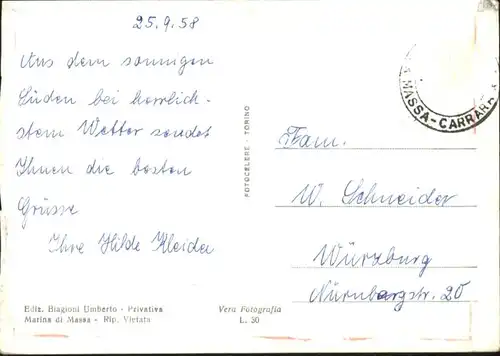 25.9.58
Aus dem sonnigen
Süden bei herrlich-
stem Wetter sendet
Ihnen die besten
Grüsse
Ihre Hilde Kleider
Ediz. Biagioni Umberto - Privativa
Marina di Massa - Rip. Vietata
Vera Fotografia
L. 30
FOTOCELERE - TORINO
MASSA-CARRARA
Fam.
W. Schneider
Würzburg
Nürnbergstr. 20